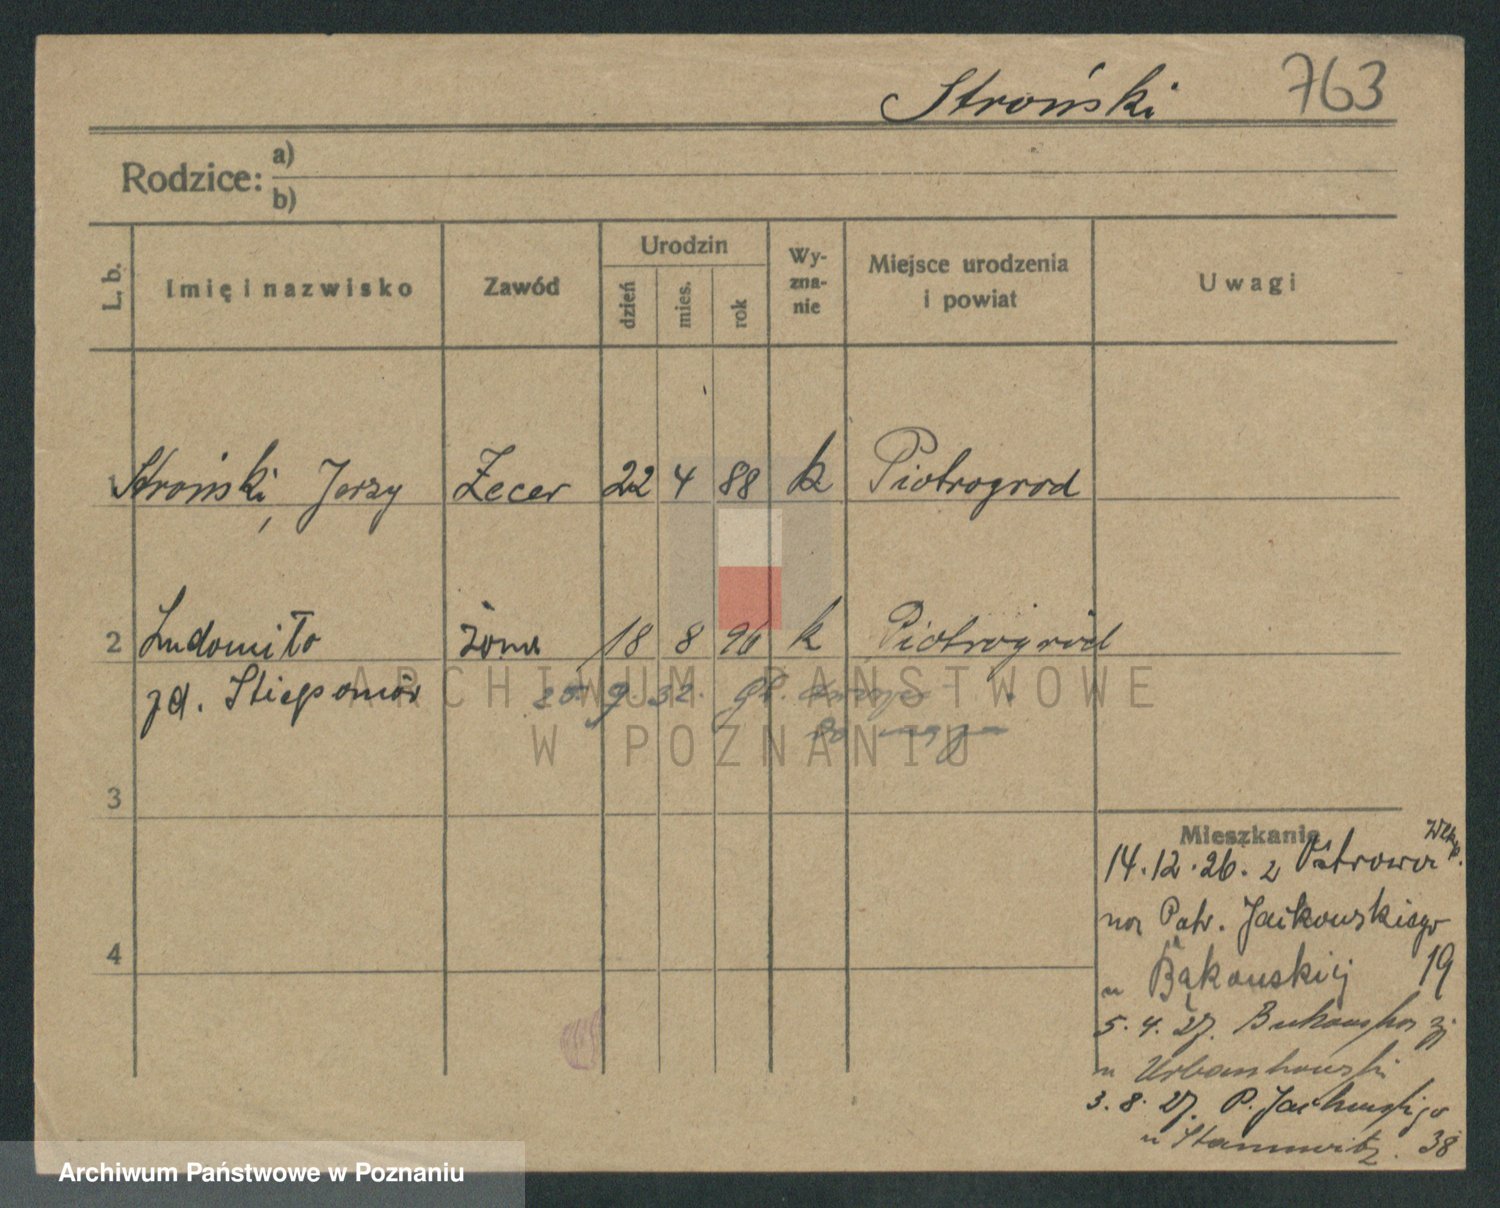 Stroński 763
Rodzice: a)
b)
L. b. Imię i nazwisko Zawód Urodzin dzień mies. rok Wy-zna-nie Miejsce urodzenia i powiat Uwagi
1 Stroński, Jerzy Zecer 22 4 88 k Piotrogrod
2 Ludomiła żona 18 8 96 k Piotrogród
zd. Stieponów 25. 9. 32.
ARCHIWUM PAŃSTWOWE
W POZNANIU
3
4
Mieszkanie
14.12.26. z Ostrowa Wlkp.
na Patr. Jackowskiego
u Bąkowskiej 19
5.4.27. Bukowska
u Urbankowski
3.8.27. P. Jackowskiego
u 38
Archiwum Państwowe w Poznaniu